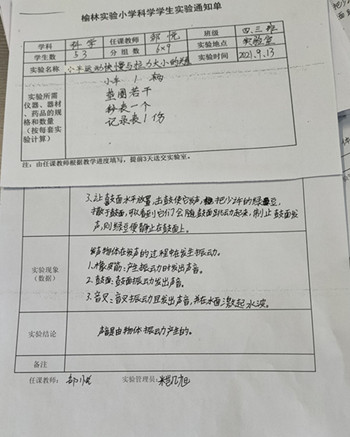 榆林实验小学科学学生实验通知单
学科 科学 任课教师 郭悦 班级 四.三班
学生数 53 分组数 6×9 实验地点 实验室
实验名称 小车运动快慢与拉力大小的 实验时间 2021.9.13
实验所需
仪器、器材
、药品的规
格和数量
(按每套实
验计算)
小车 1 辆
垫圈若干
秒表一个
记录表1份
注:由任课教师根据教学进度填写,提前3天送交实验室。
3.让鼓面水平放置,击鼓使它发声,把少许的绿豆
撒于鼓面,可以看到它们会随鼓面跳动起来,制止鼓面发
声,则绿豆便静止在鼓面上。
实验现象
(数据)
发声物体在发声的过程中在发生振动。
1.橡皮筋:产生振动时发出声音。
2.鼓面:鼓面振动发出声音。
3.音叉:音叉振动且发出声音,并在水面激起水波。
实验结论
声音由物体振动产生的。
备注
任课教师: 实验管理员: